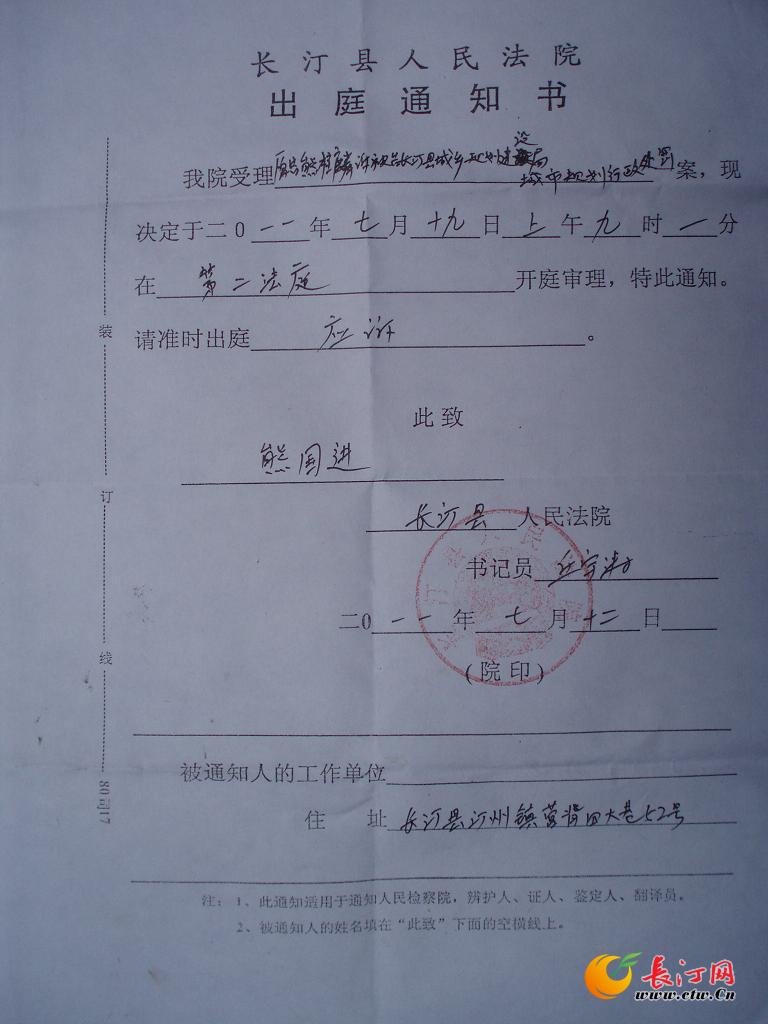 长汀县人民法院
出庭通知书
我院受理原告熊 诉被告长汀县城乡规划建设局城市规划行政处罚案，现
决定于二0一一年七月十九日上午九时一分
在第二法庭开庭审理，特此通知。
请准时出庭应诉。
此致
熊国进
长汀县人民法院
书记员
二0一一年七月十二日
（院印）
被通知人的工作单位
住址 长汀县汀州镇营背 大巷52号
注：1、此通知适用于通知人民检察院，辨护人、证人、鉴定人、翻译员。
2、被通知人的姓名填在“此致”下面的空横线上。
装
订
线
80司17
长汀网
www.ctw.Cn